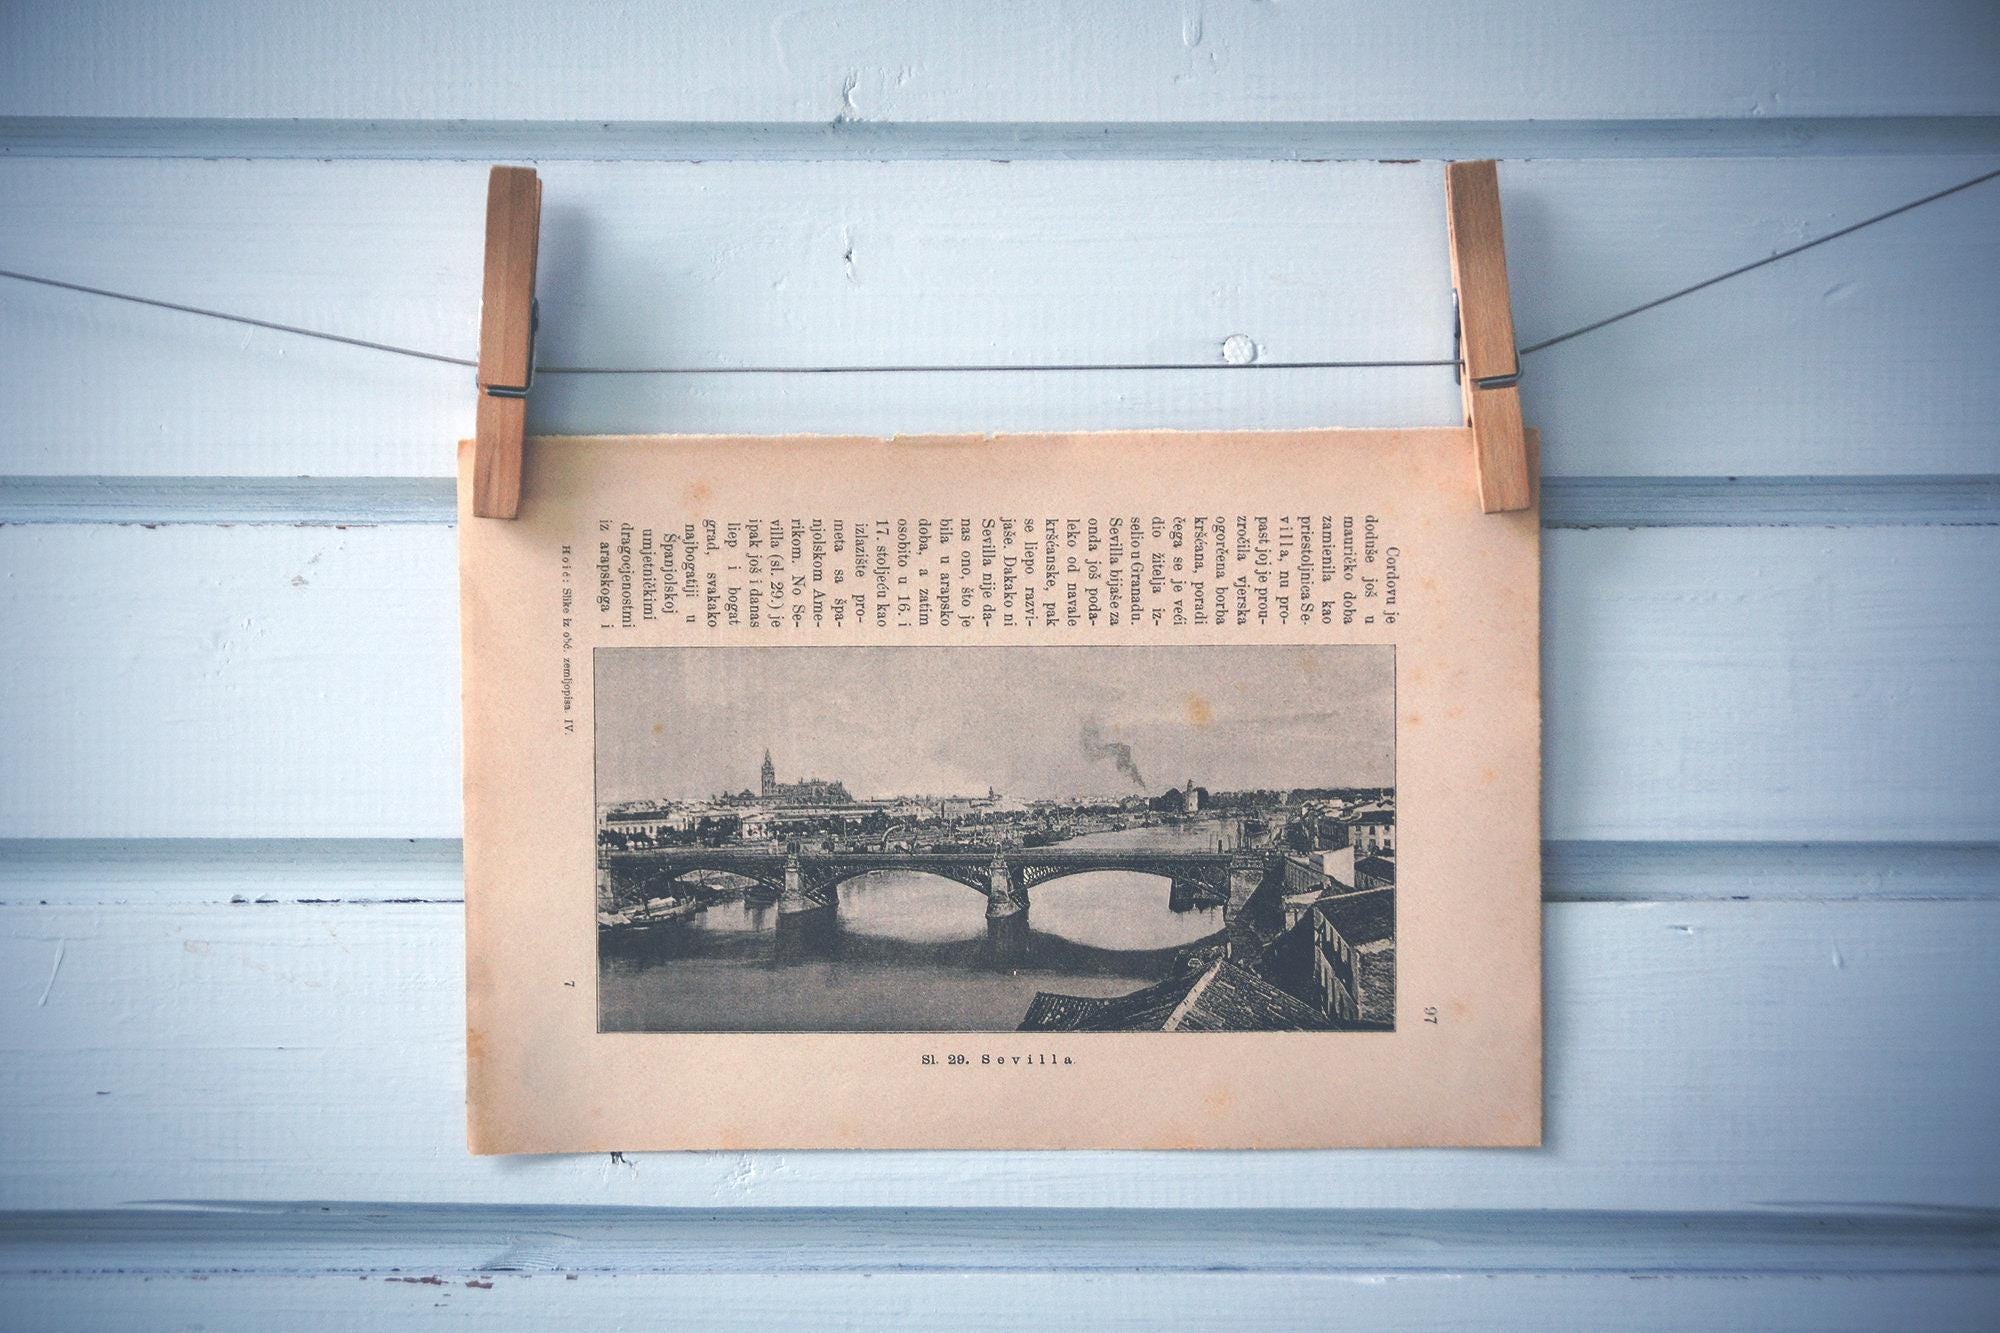 97
Cordovu je
doduše još u
mauričko doba
zamienila kao
priestoljnica Se-
villa, nu pro-
past joj je prou-
zročila vjerska
ogorčena borba
kršćana, poradi
čega se je veći
dio žitelja iz-
selio u Granadu.
Sevilla bijaše za
onda još poda-
leko od navale
kršćanske, pak
se liepo razvi-
jaše. Dakako ni
Sevilla nije da-
nas ono, što je
bila u arapsko
doba, a zatim
osobito u 16. i
17. stoljeću kao
izlazište pro-
meta sa špa-
njolskom Ame-
rikom. No Se-
villa (sl. 29.) je
ipak još i danas
liep i bogat
grad, svakako
najbogatiji u
Španjolskoj
umjetničkimi
dragocjenostmi
iz arapskoga i
Sl. 29. Sevilla.
Hoić: Slike iz obć. zemljopisa. IV.
7